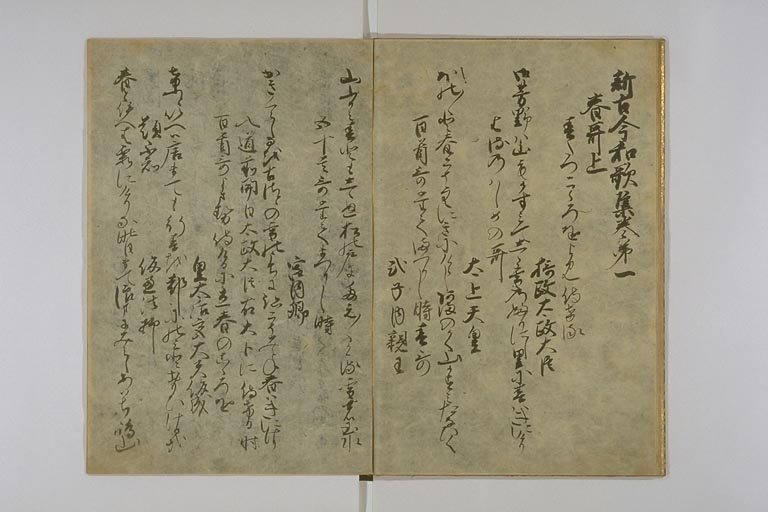 新古今和歌集巻第一
春哥上
春たつこゝろをよみ侍ける
摂政太政大臣
御芳野ハ山もかすみて白雪のふりにし里に春ハきにけり
はるのはしめの哥
太上天皇
ほの〳〵と春こそ空にきにけらし天のかく山かすみたなひく
百首哥たてまつりし時春の哥
式子内親王
山ふかみ春ともしらぬ松の戸にたえ〳〵かゝる雪の玉水
五十首哥たてまつりし時
宮内卿
かきくらし猶古郷の雪のうちに跡こそみえね春ハきにけり
入道前関白太政大臣右大臣に侍ける時
百首哥よませ侍けるに立春のこゝろを
皇太后宮大夫俊成
けふといへハ唐まても行春を都にのみとおもひけるかな
題不知
俊恵法師
春といへハ霞にけりな昨日まて浪まにみえしあはち嶋山